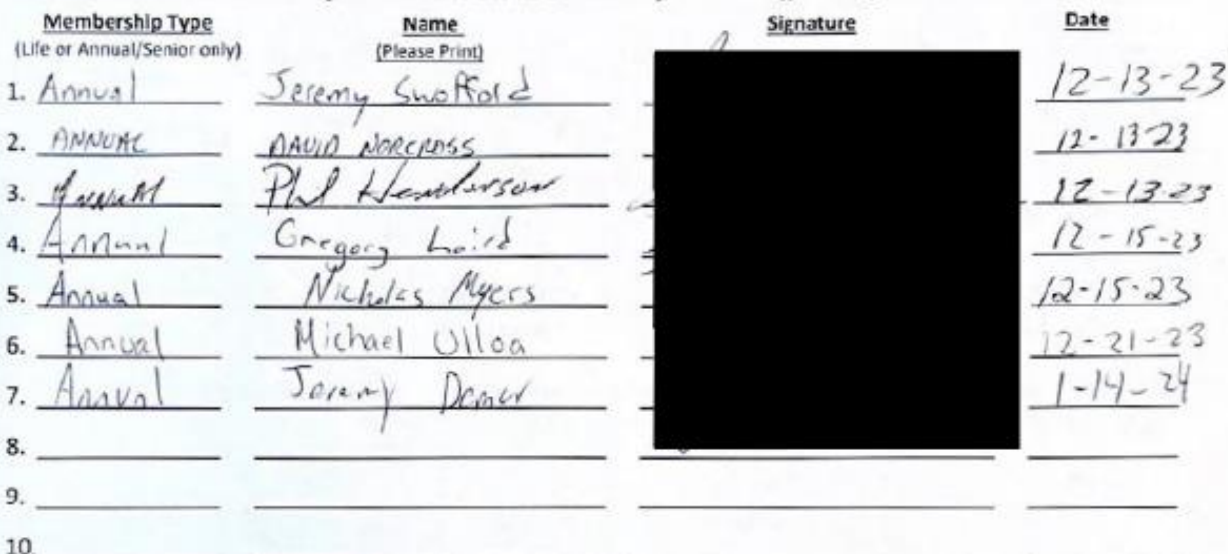 Membership Type Name Signature Date
(Life or Annual/Senior only) (Please Print)
1. Annual Jeremy Swofford 12-13-23
2. ANNUAL DAVID NORCROSS 12-13-23
3. Annual Phil Henderson 12-13-23
4. Annual Gregory Laird 12-15-23
5. Annual Nicholas Myers 12-15-23
6. Annual Michael Ulloa 12-21-23
7. Annual Jeremy 1-14-24
8.
9.
10